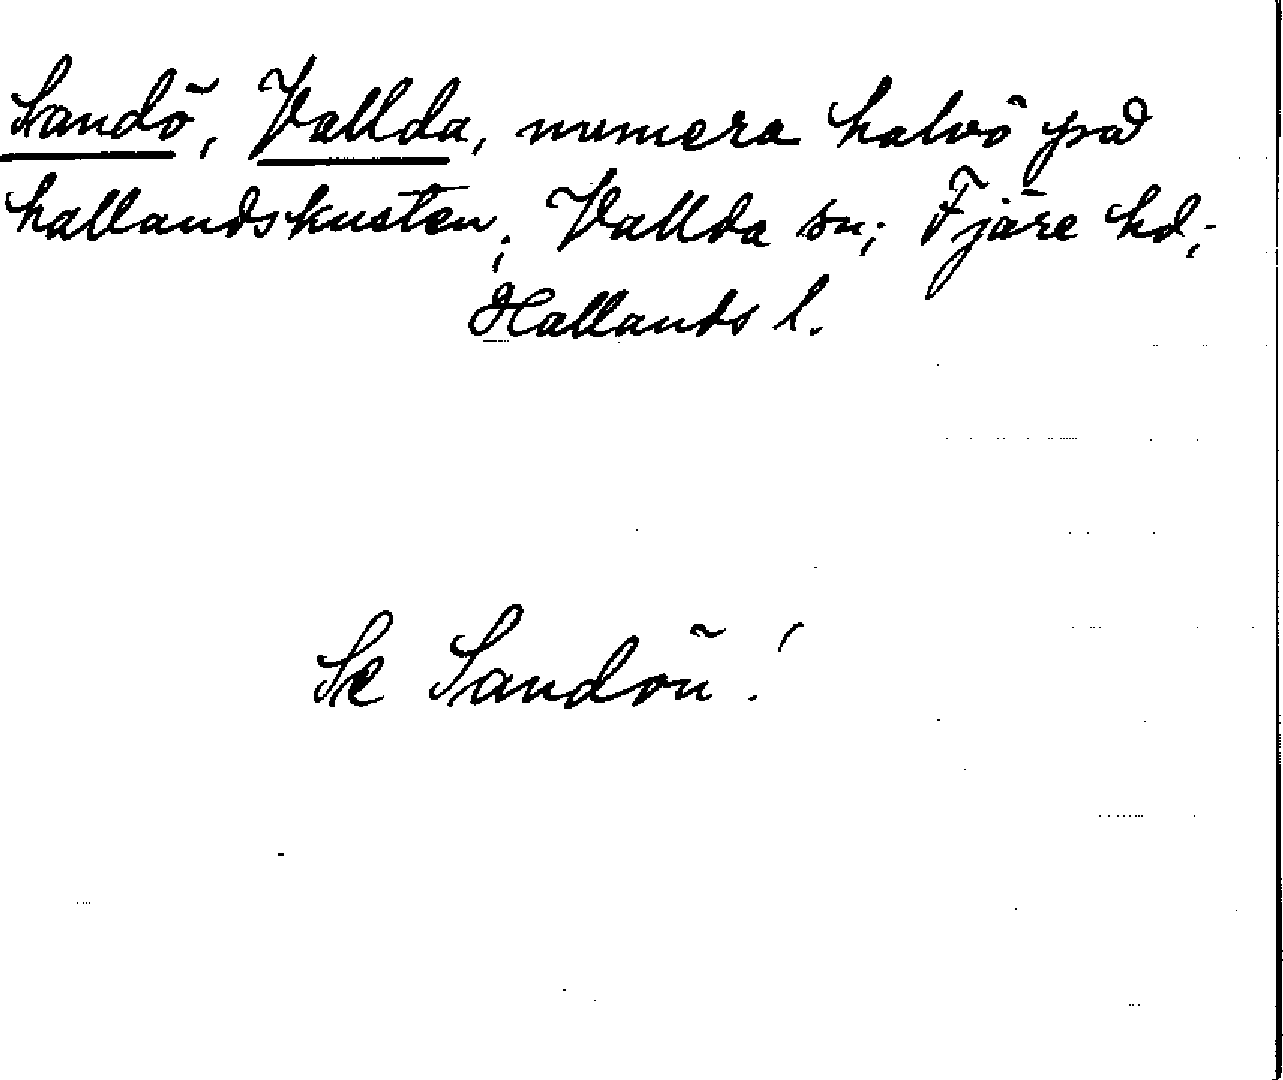 Sandö, Vallda, numera halvö på
hallandskusten; Vallda sn; Fjäre hd;
Hallands l.
Se Sandön!